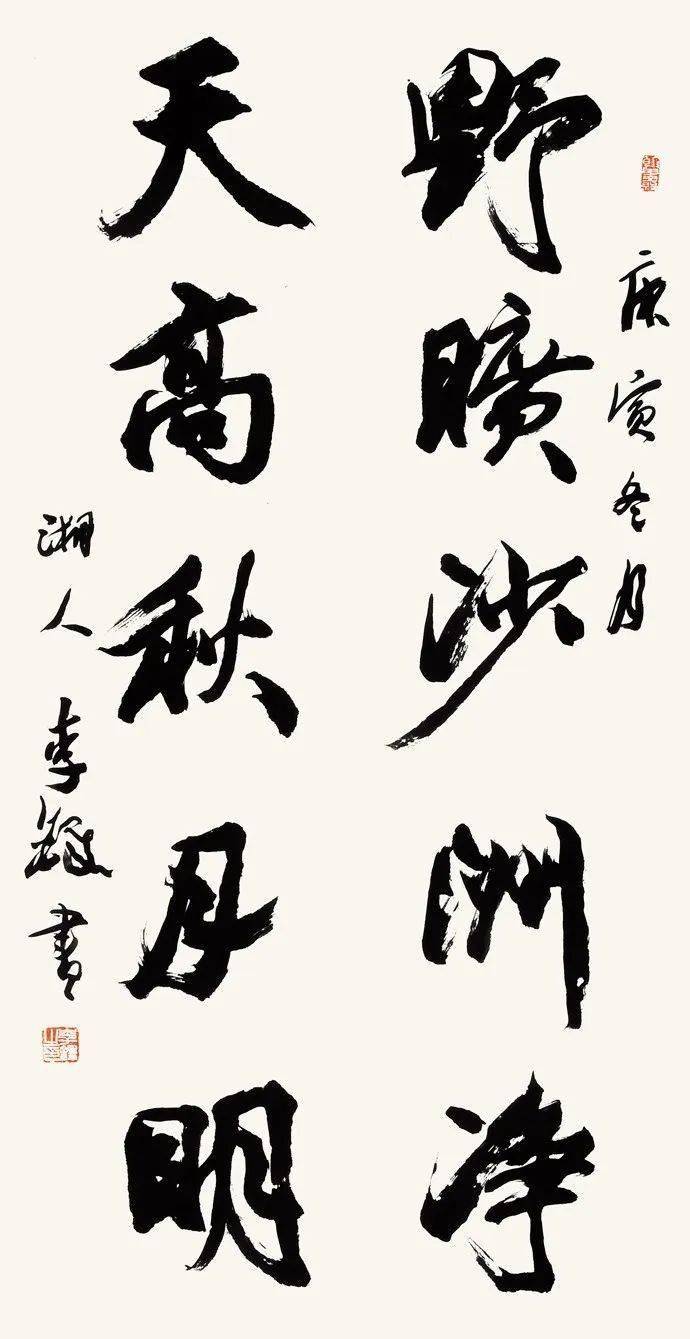 庚寅冬月
野曠沙洲净
天高秋月明
湘人李鐸書